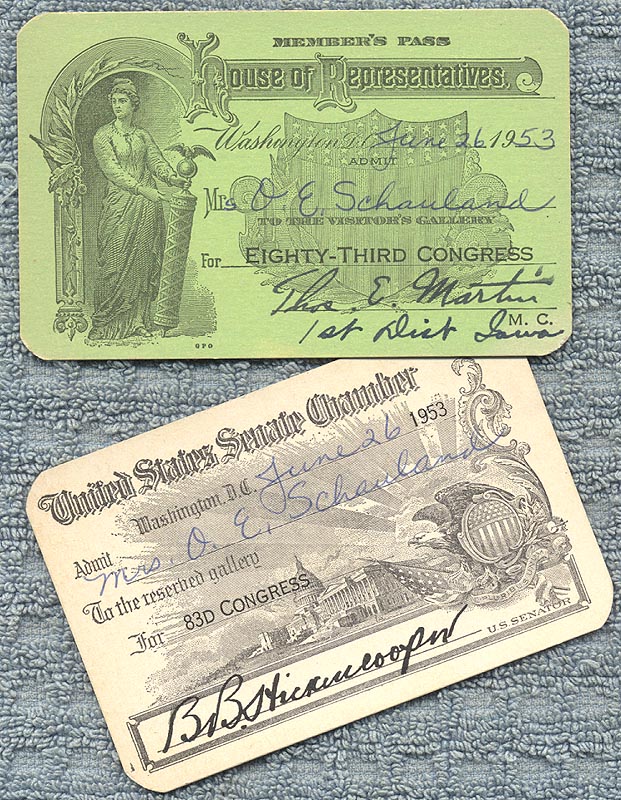 MEMBER'S PASS
House of Representatives.
Washington D.C. June 26 1953
ADMIT
Mrs O. E. Schauland
TO THE VISITOR'S GALLERY
For EIGHTY-THIRD CONGRESS
Thos. E. Martin
M. C.
1st Dist Iowa
GPO
United States Senate Chamber
Washington, D.C. June 26 1953
Admit Mrs. O. E. Schauland
To the reserved gallery
For 83D CONGRESS
B.B. Hickenlooper
U.S. SENATOR